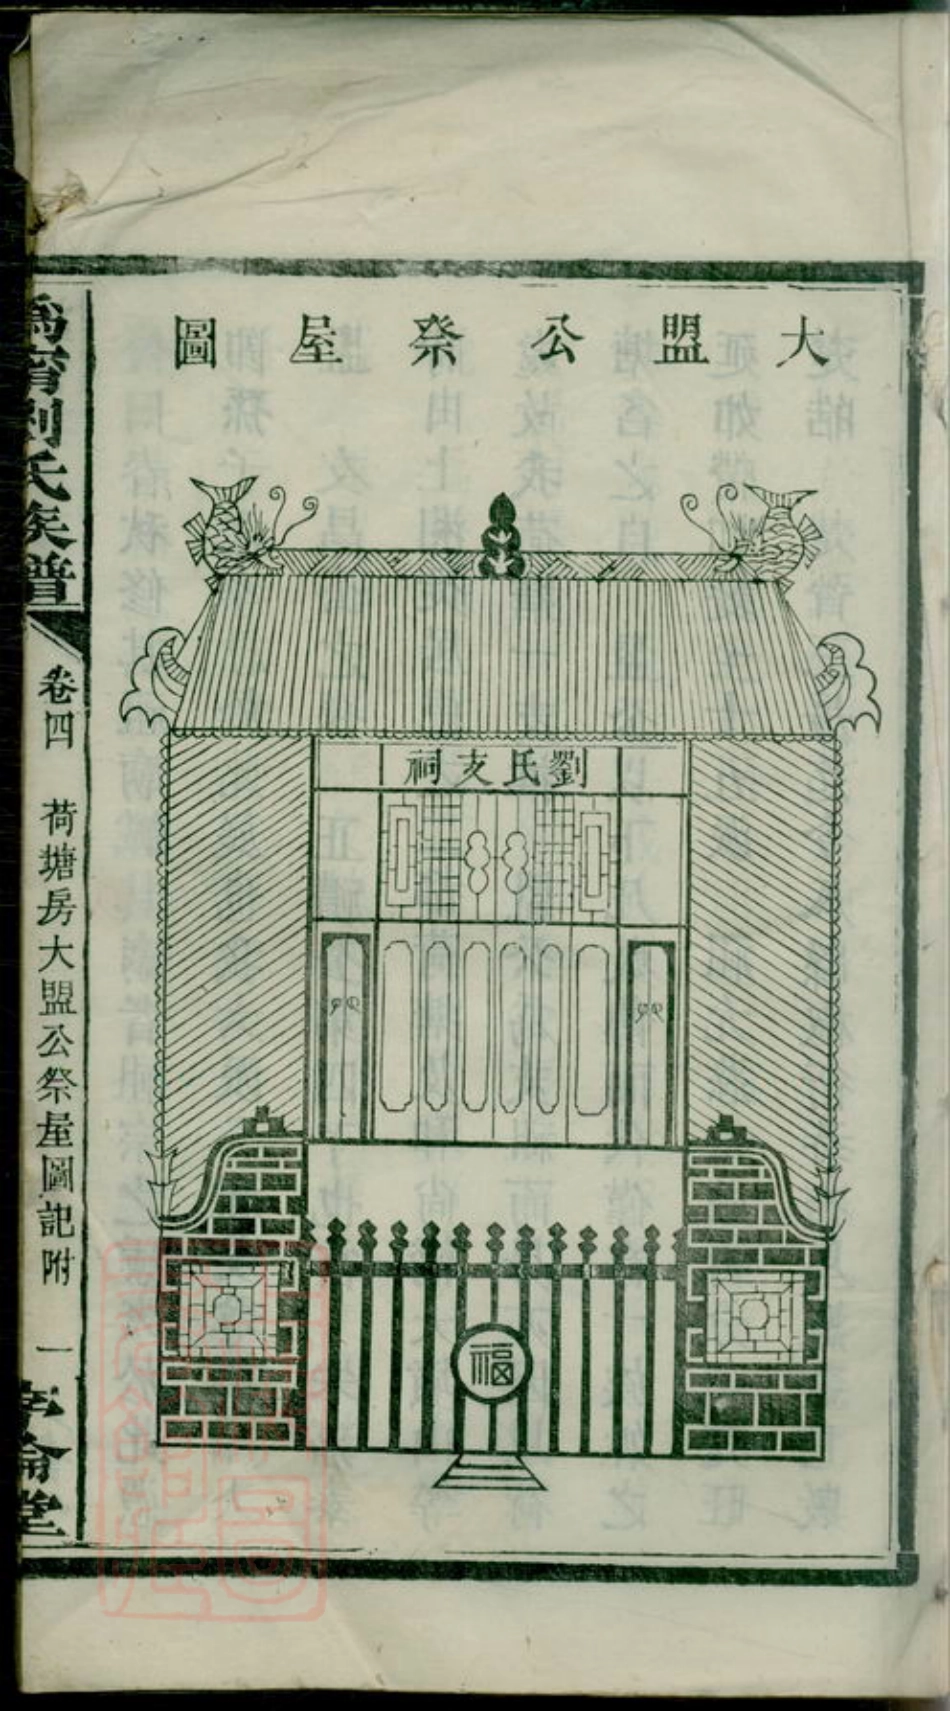 大盟公祭屋圖
劉氏支祠
福
劉氏族譜
卷四
荷塘房大盟公祭屋圖記附
一
倫堂